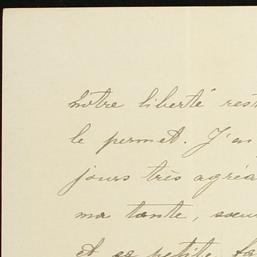 notre liberté res
le permet. J'a
jours très agréa
ma tante, soeu
et sa petite fa